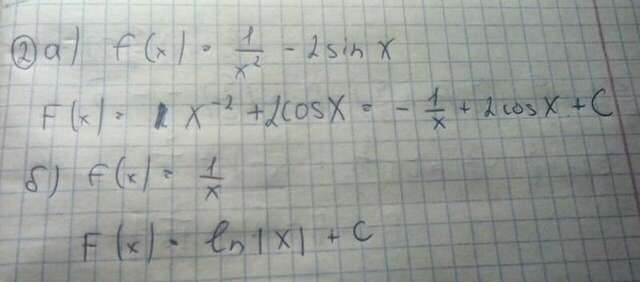 ② а) f(x) = 1/x² - 2sin x
F(x) = x⁻² + 2cosx = - 1/x + 2cosx + C
б) f(x) = 1/x
F(x) = ln|x| + C